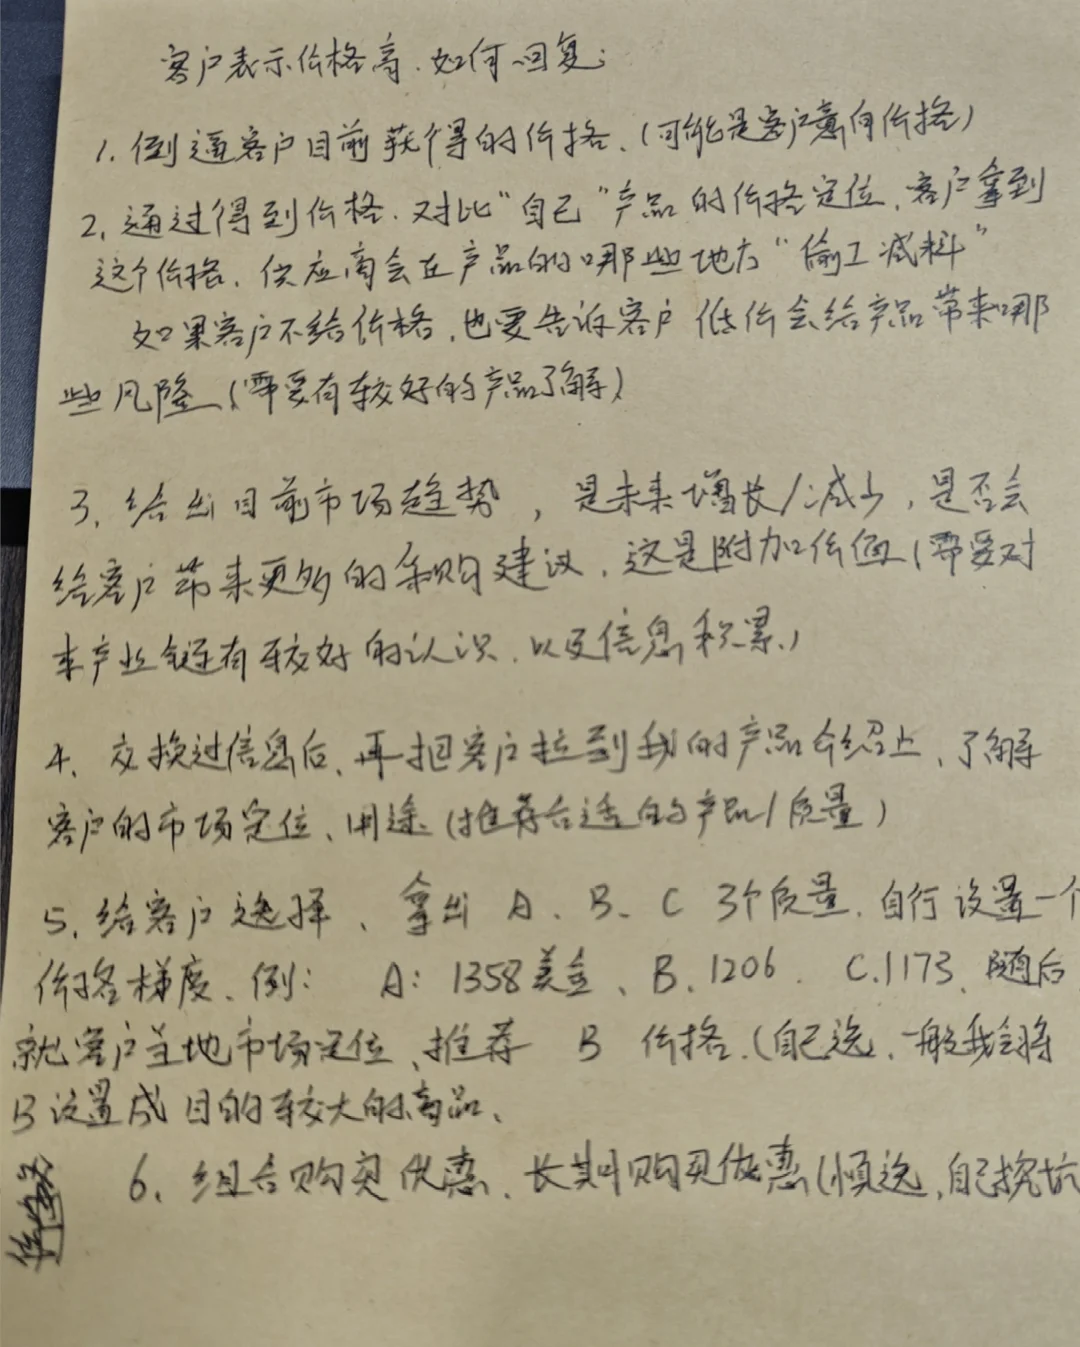 客户表示价格高.如何回复:
1.倒逼客户目前获得的价格.(可能是客户意向价格)
2.通过得到价格.对比"自己"产品的价格定位、客户拿到
这个价格、供应商会在产品的哪些地方"偷工减料"
如果客户不给价格,也要告诉客户低价会给产品带来哪
些风险(需要有较好的产品了解)
3、给出目前市场趋势,是未来增长/减少,是否会
给客户带来更多的采购建议、这是附加价值(需要对
本产业链有较好的认识、以及信息积累、)
4、交换过信息后、再把客户拉到我的产品介绍上、了解
客户的市场定位、用途(推荐合适的产品/质量)
5、给客户选择、拿出A、B、C 3个质量.自行设置一个
价格梯度、例: A:1358美金、B.1206. C.1173、随后
就客户当地市场定位、推荐 B 价格.(自己选、一般我会将
B设置成目的较大的商品、
6、组合购买优惠、长期购买优惠(慎选,自己挖坑
价格